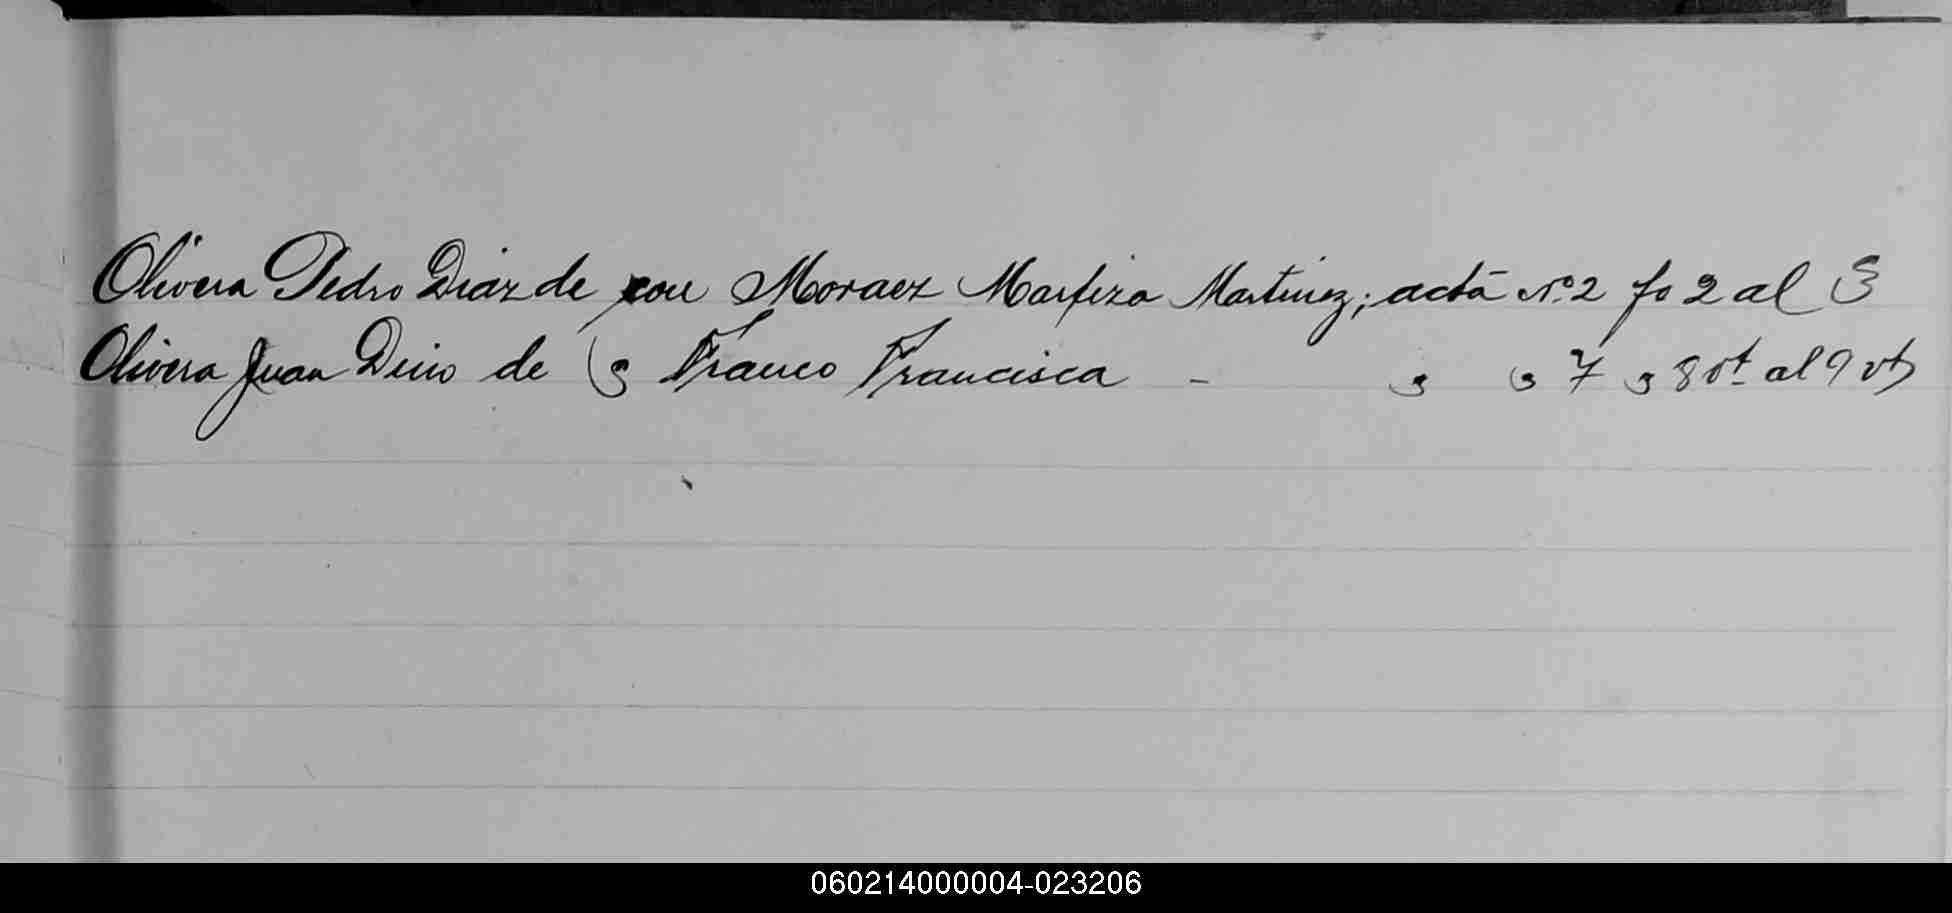 Olivera Pedro Diaz de con Moraez Marfiza Martinez; acta Nº 2 fo 2 al 3
Olivera Juan Dino de " Franco Francisca - " " 7 " 8 vt. al 9 vt
060214000004-023206